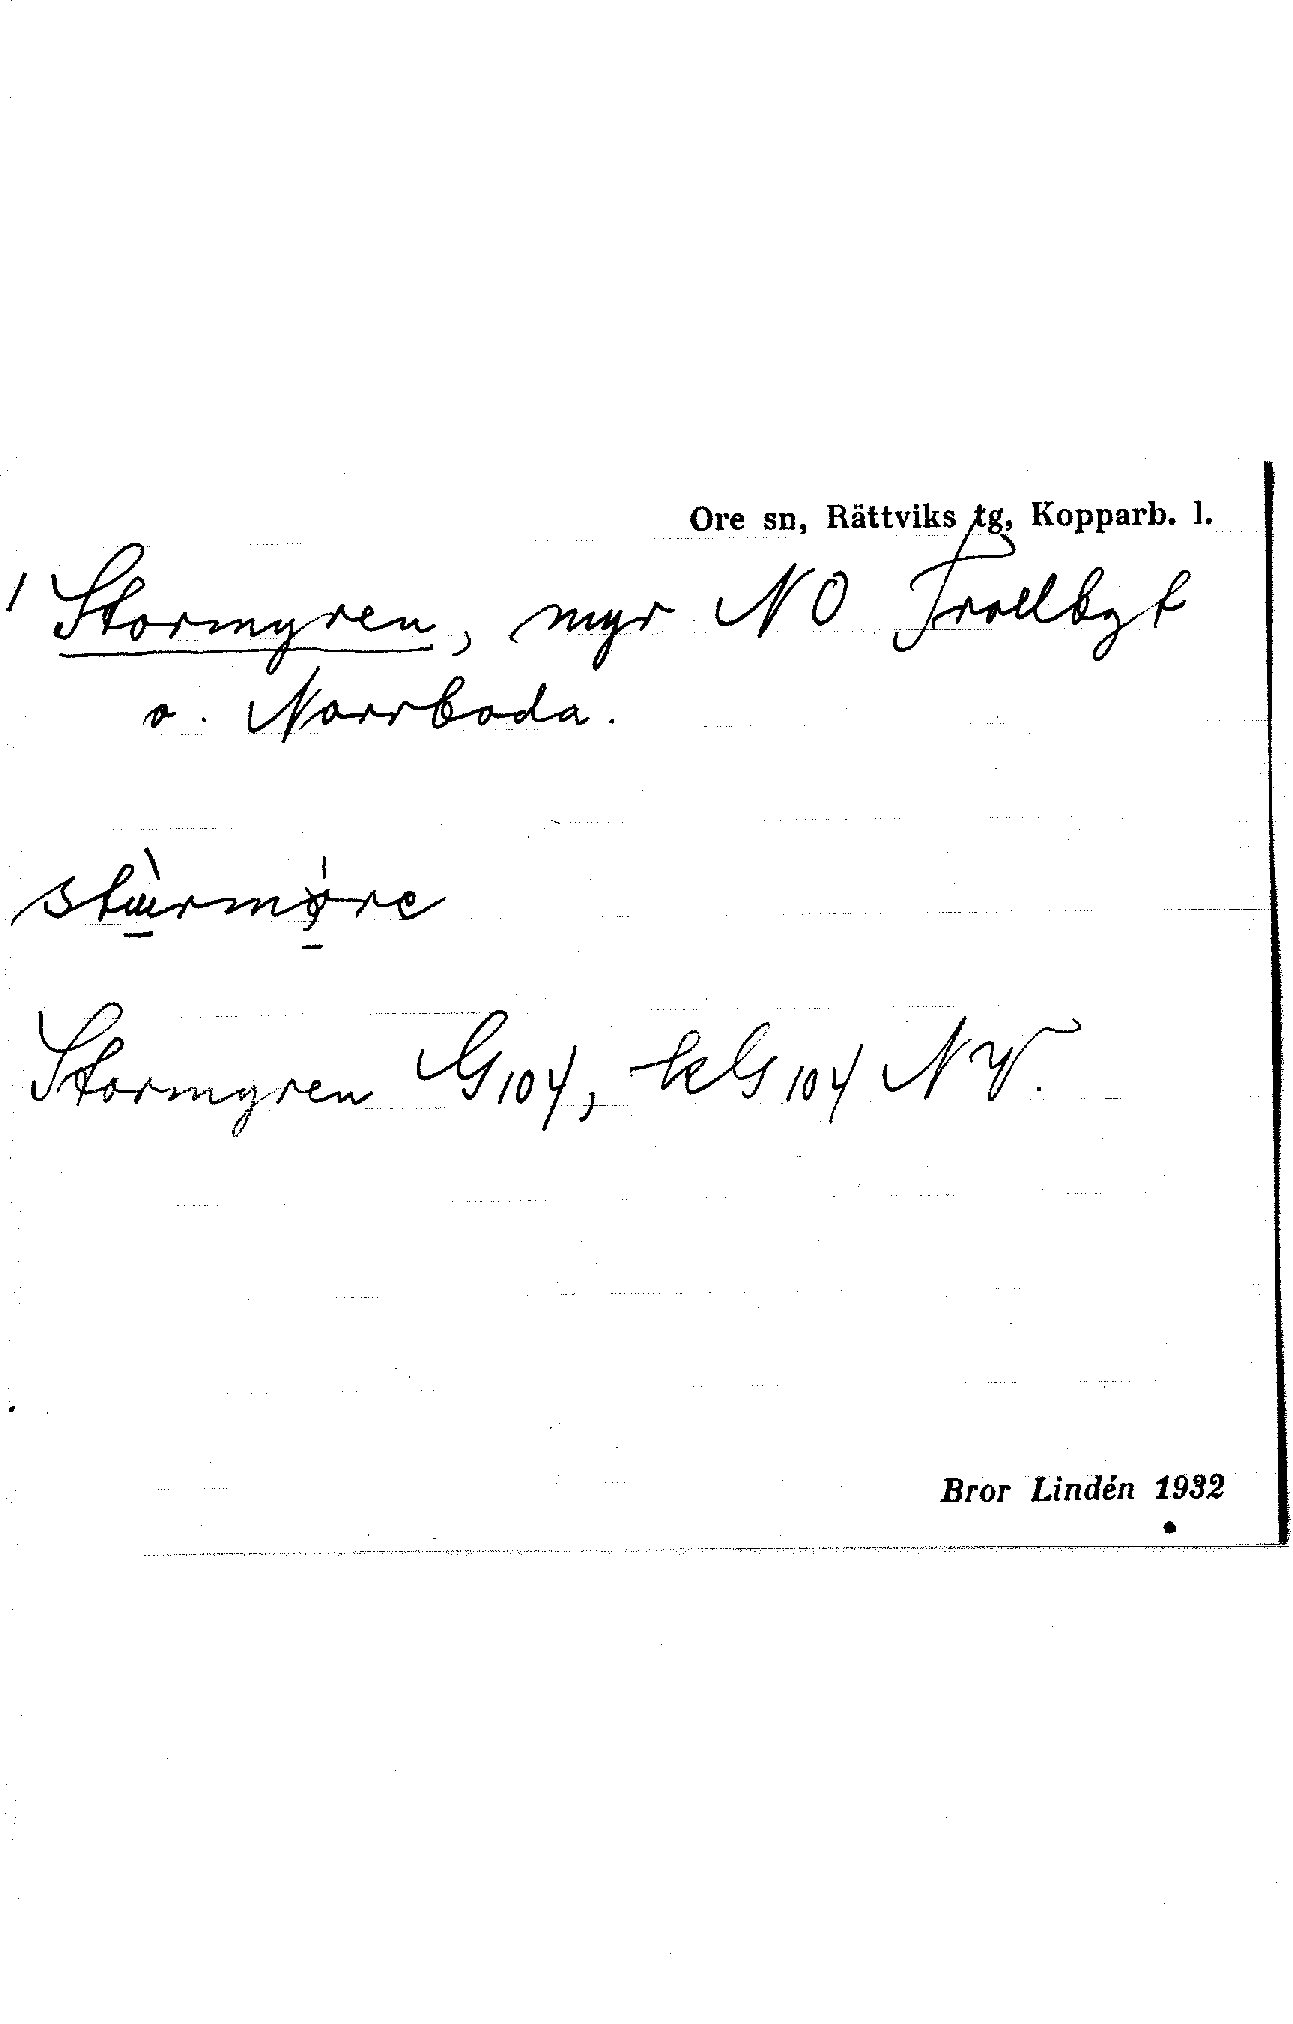 Ore sn, Rättviks tg, Kopparb. l.
/ Stormyren, myr NO Trollbyt
o. Norrboda.
Stormyren G104, kG104 NV.
Bror Lindén 1932